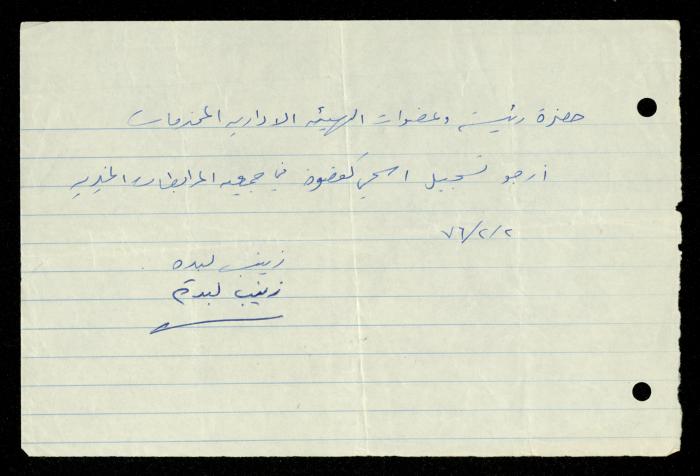 حضرة رئيسة وعضوات الهيئه الاداريه المحترمات
ارجو تسجيل اسمي كعضوة في جمعيه المرابطات الخيريه
٧٦/٢/٢
زينب لبده
زينب لبدة